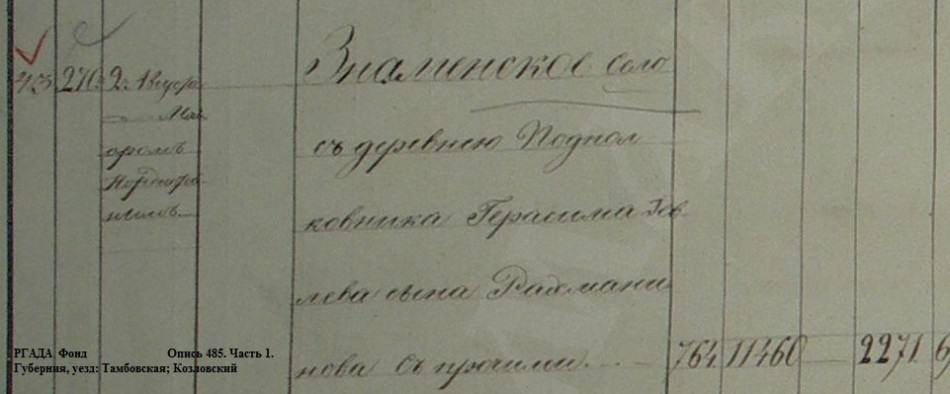 43 270 2. Августа Знаменское село
Маи
съ деревнею Подпол
оромъ
ковника Герасима Іев
лева сына Рахмани
нова Съ прочими... 764 11460 2271 6
РГАДА Фонд Опись 485. Часть 1.
Губерния, уезд: Тамбовская; Козловский